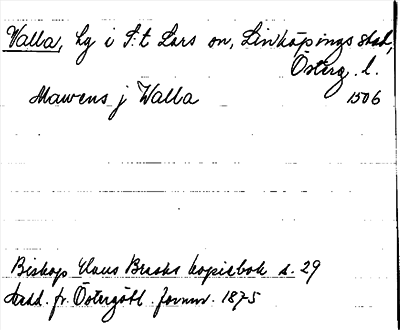 Valla, hg i S:t Lars sn, Linköpings stad,
Österg. l.
Mawens j Walla 1506
Biskop Claus Brasks kopiebok s. 29
Medd. fr. Östergötl. fornm. 1875